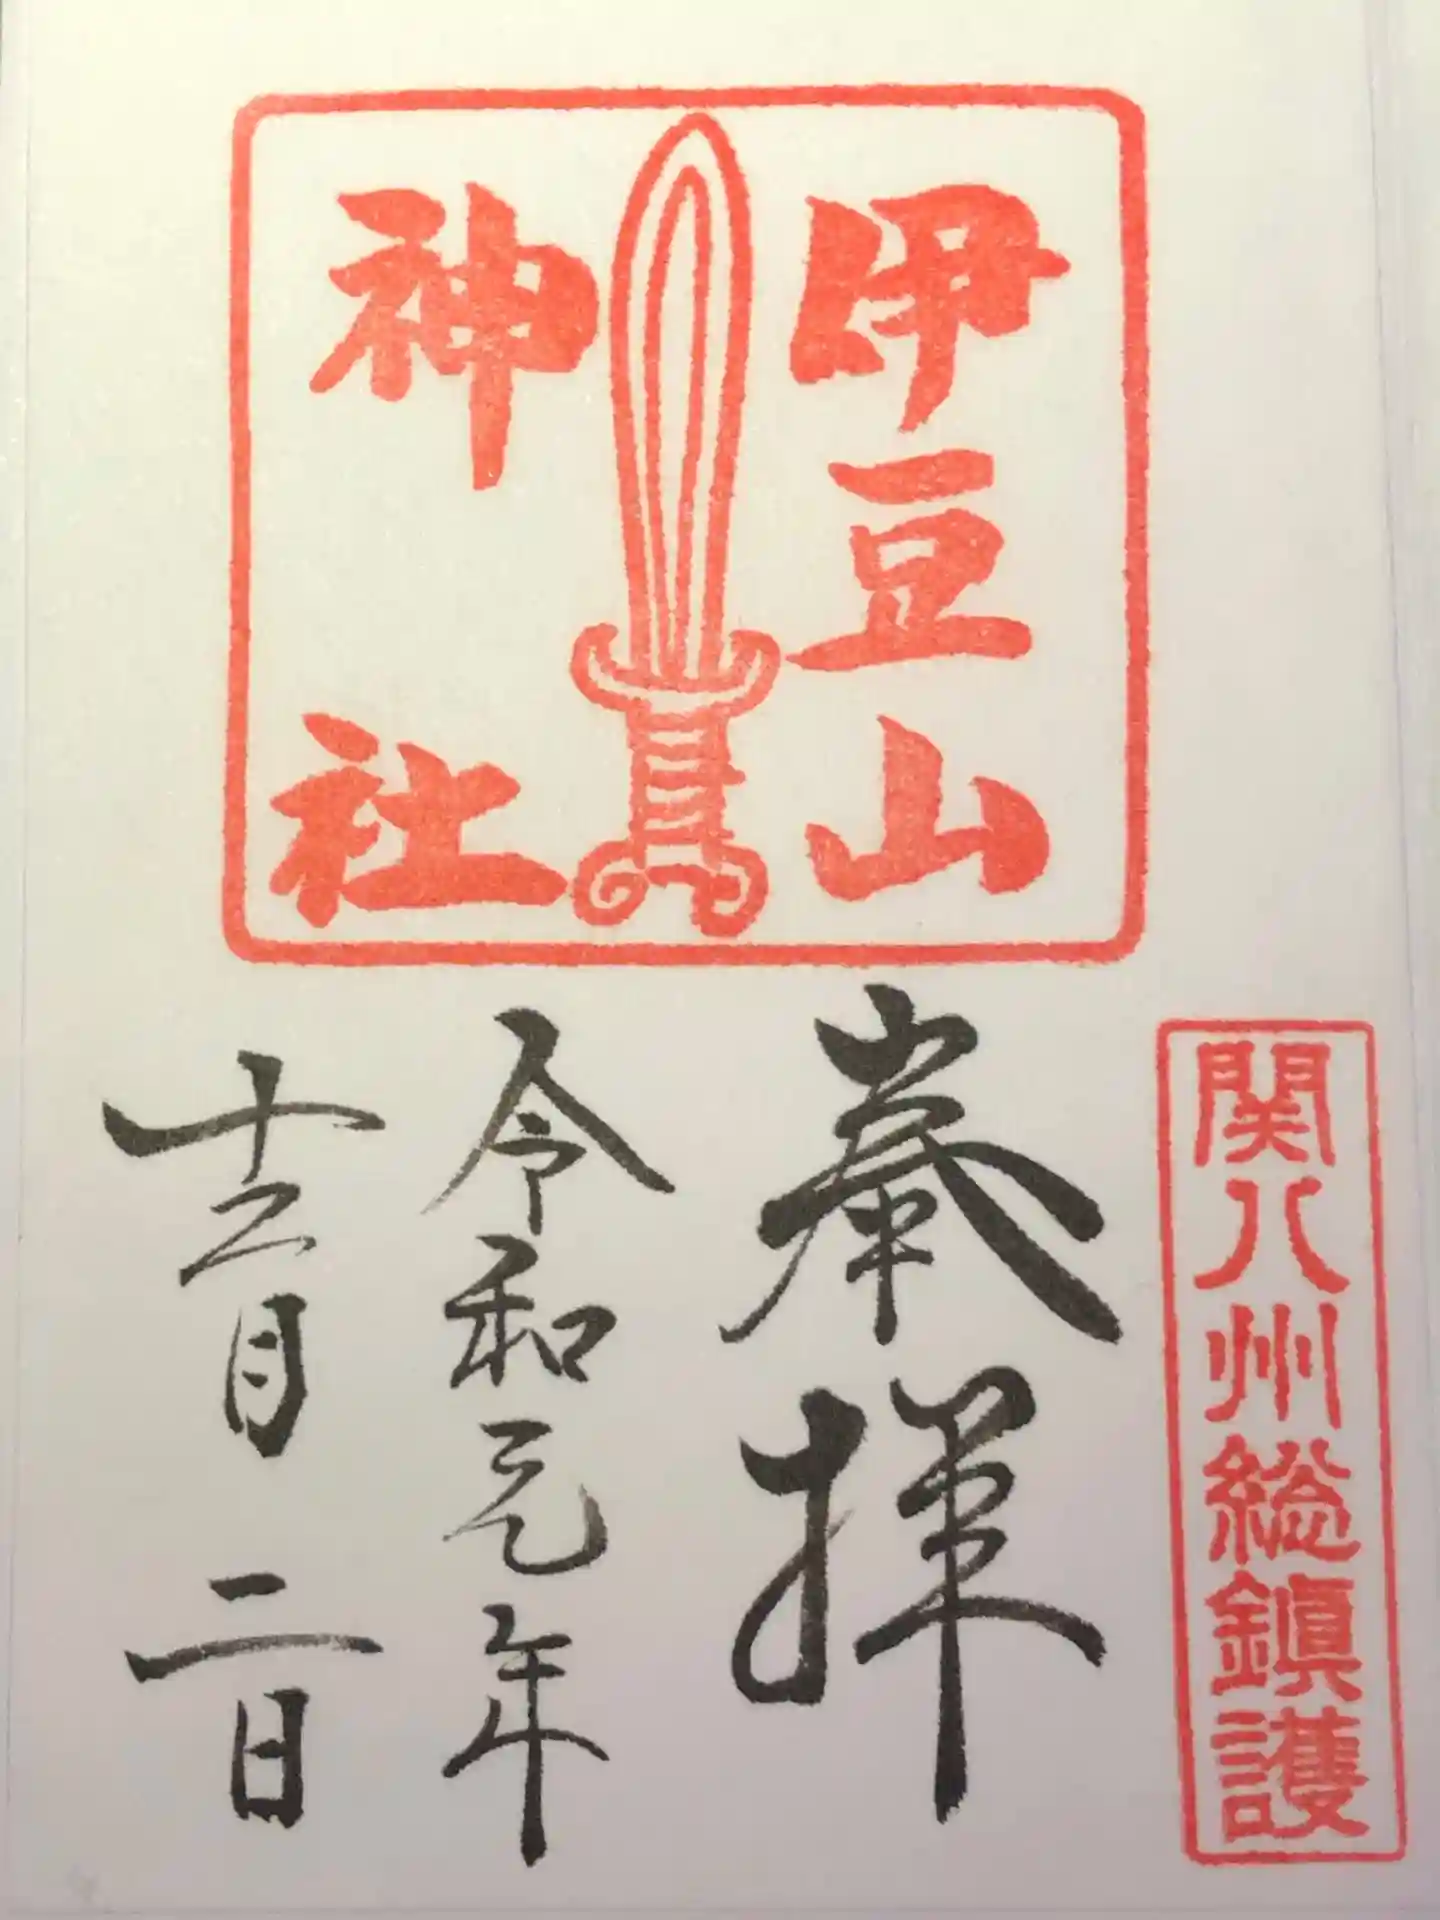 伊豆山
神社
関八州総鎮護
奉拝
令和元年
十二月二日